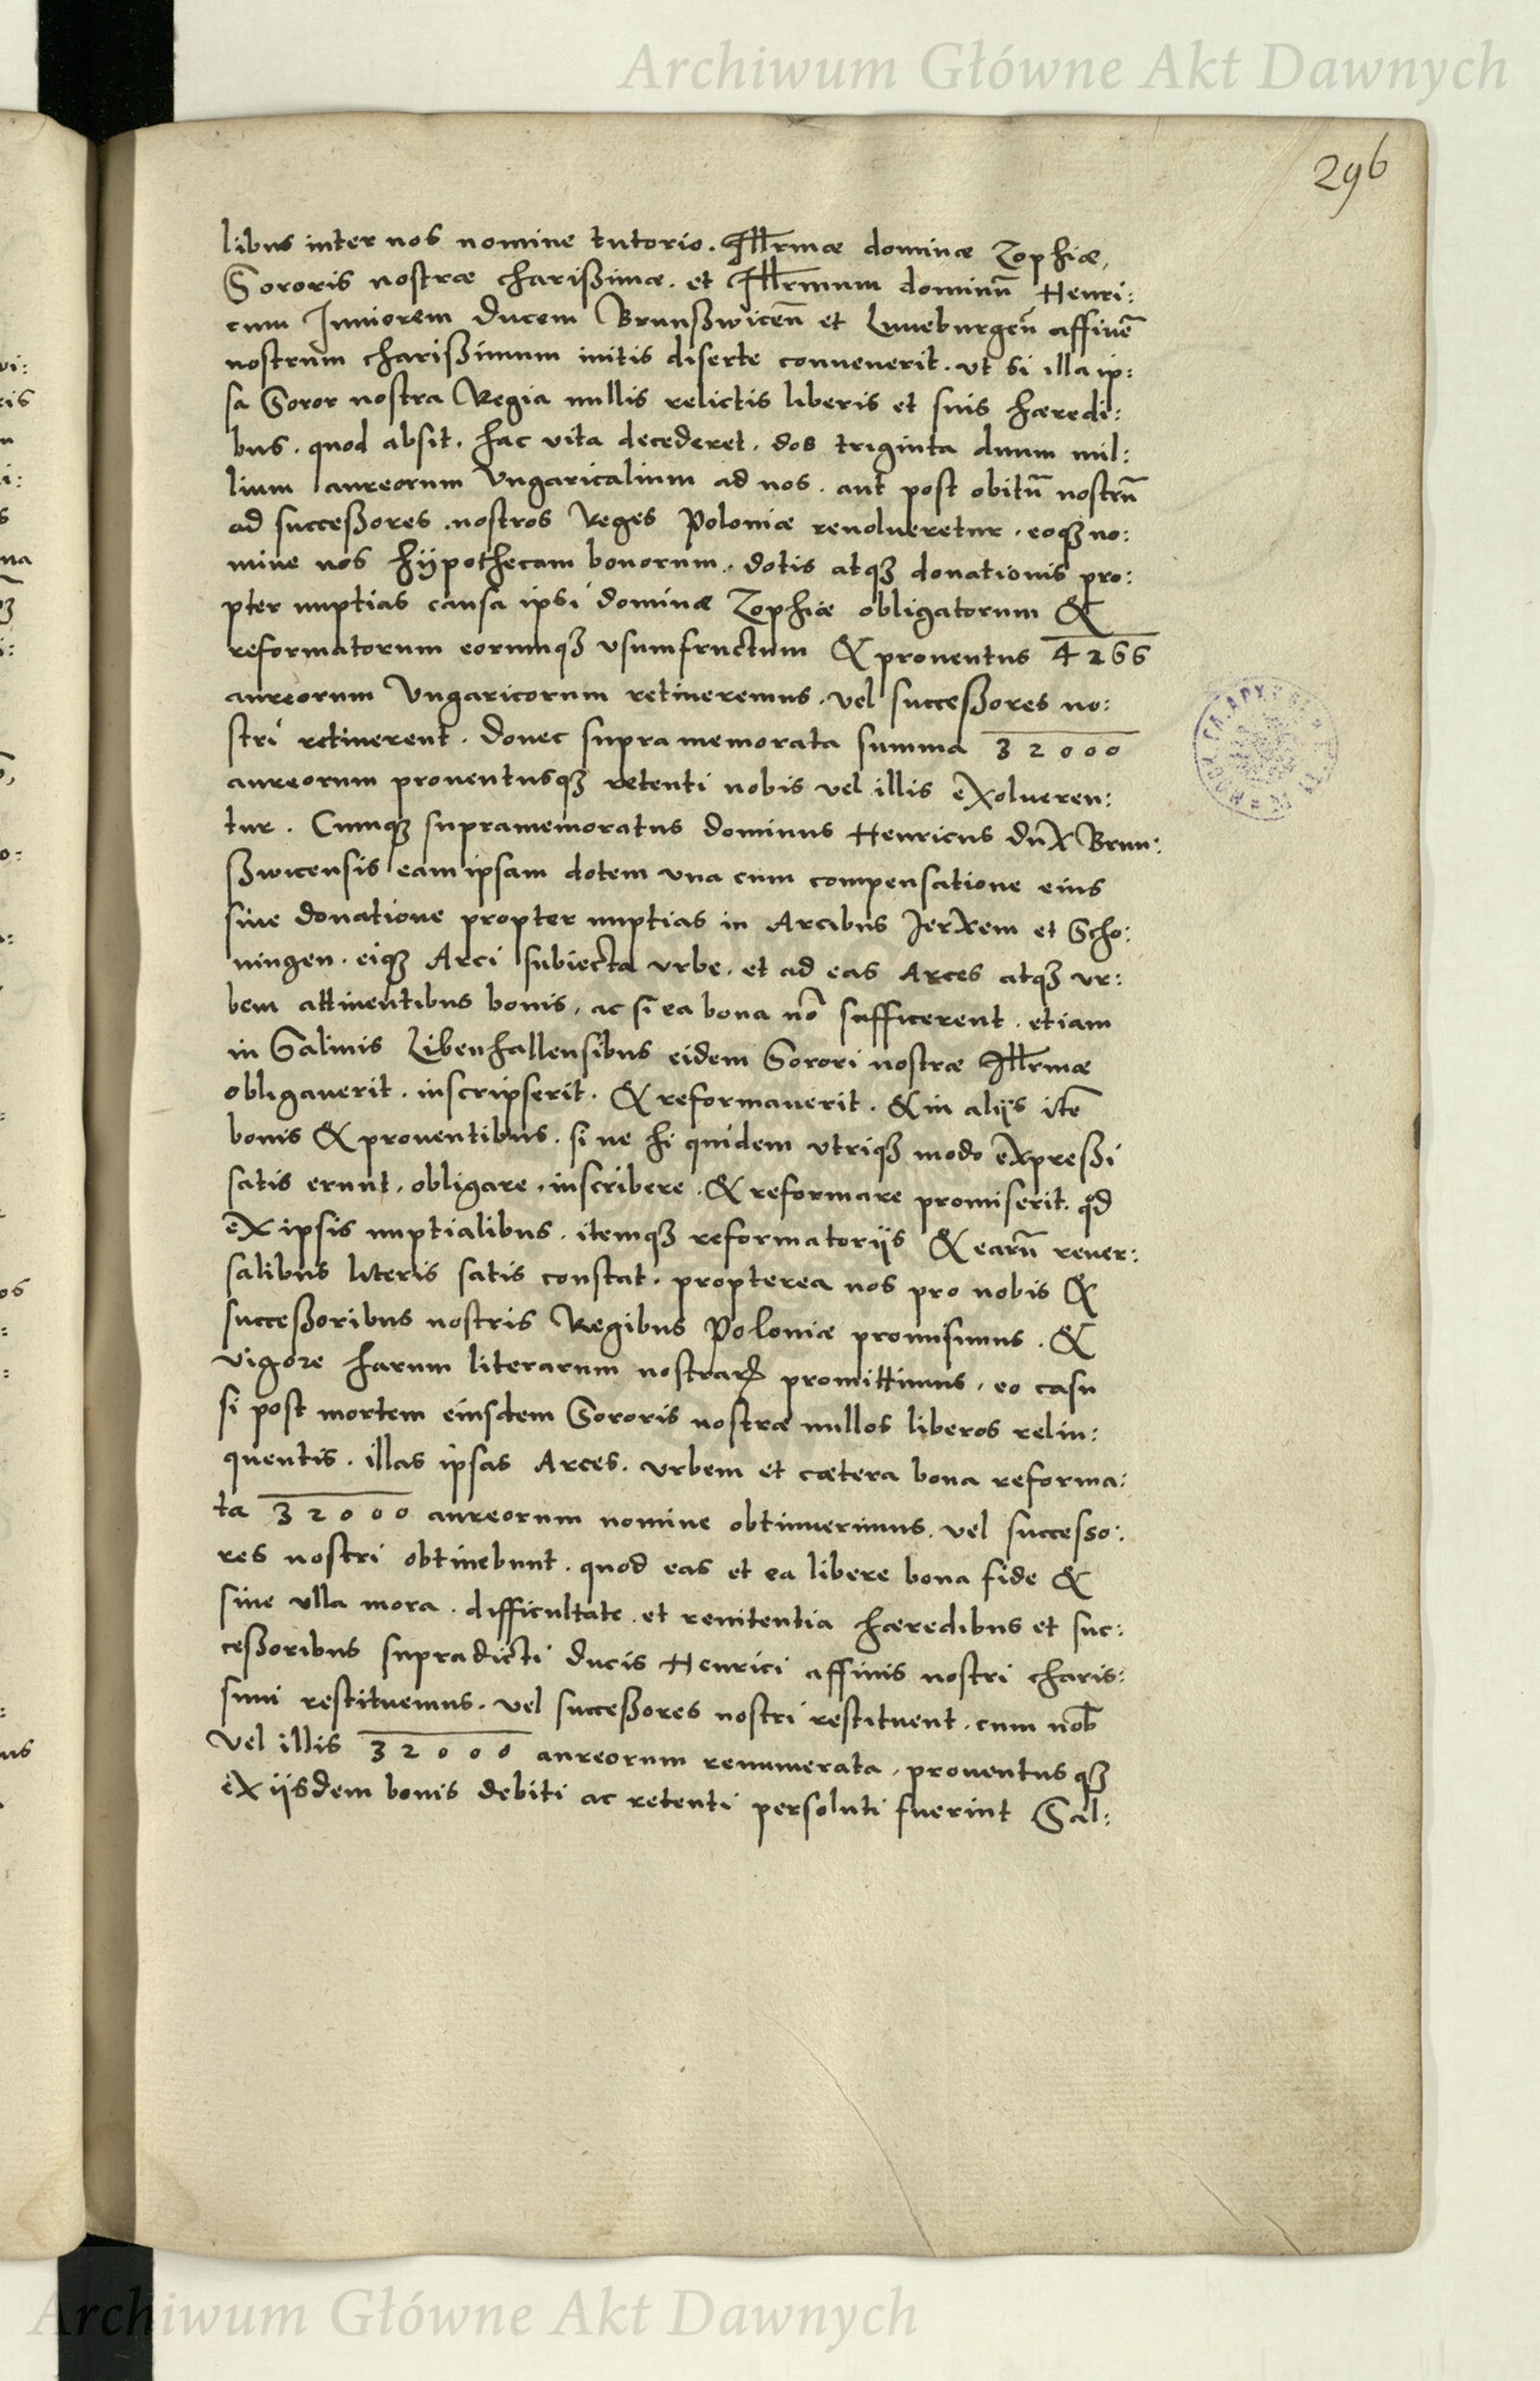 Archiwum Główne Akt Dawnych
296
libus inter nos nomine tutorio. Illrmæ dominæ Zophiæ,
Sororis nostræ charißimæ. et Illrmum dominū Henri:
cum Iuniorem Ducem Brunßwiceñ et Luneburgeñ affinē
nostrum charißimum initis diserte convenerit. ut si illa ip:
sa Soror nostra Regia nullis relictis liberis et suis hæredi:
bus. quod absit. hac vita decederet. dos triginta duum mil:
lium aureorum Vngaricalium ad nos. aut post obitū nostrū
ad succeßores nostros Reges Poloniæ reuolueretur. eoqꝫ no:
mine nos hÿpothecam bonorum. dotis atqꝫ donationis pro:
pter nuptias causa ipsi dominæ Zophiæ obligatorum &
reformatorum eorumqꝫ vsumfructum & prouentus 4266
aureorum Vngaricorum retineremus. vel succeßores no:
stri retinerent. donec supra memorata summa 32000
aureorum prouentusqꝫ retenti nobis vel illis exolueren:
tur. Cumqꝫ supramemoratus dominus Henricus dux Brun:
ßwicensis eam ipsam dotem vna cum compensatione eius
siue donatione propter nuptias in Arcibus Jerxem et Scho:
ningen. eiqꝫ Arci subiecta vrbe. et ad eas Arces atqꝫ vr:
bem attinentibus bonis, ac si ea bona nō sufficerent. etiam
in Salinis Libenhallensibus eidem Sorori nostræ Illrmæ
obligauerit. inscripserit. & reformauerit. & in alijs itē
bonis & prouentibus. si ne hi quidem vtriqꝫ modo expreßi
satis erunt. obligare. inscribere. & reformare promiserit. qd
ex ipsis nuptialibus. itemqꝫ reformatorijs & earū reuer:
salibus literis satis constat. propterea nos pro nobis &
succeßoribus nostris Regibus Poloniæ promisimus. &
vigore harum literarum nostrarꝝ promittimus, eo casu
si post mortem eiusdem Sororis nostræ nullos liberos relin:
quentis. illas ipsas Arces. vrbem et cætera bona reforma:
ta 32000 aureorum nomine obtinuerimus. vel successo:
res nostri obtinebunt. quod eas et ea libere bona fide &
sine vlla mora. difficultate. et renitentia hæredibus et suc:
ceßoribus supradicti ducis Henrici affinis nostri charis:
simi restituemus. vel succeßores nostri restituent. cum nob
vel illis 32000 aureorum renumerata, prouentusqꝫ
ex ijsdem bonis debiti ac retenti persoluti fuerint Sal:
Archiwum Główne Akt Dawnych